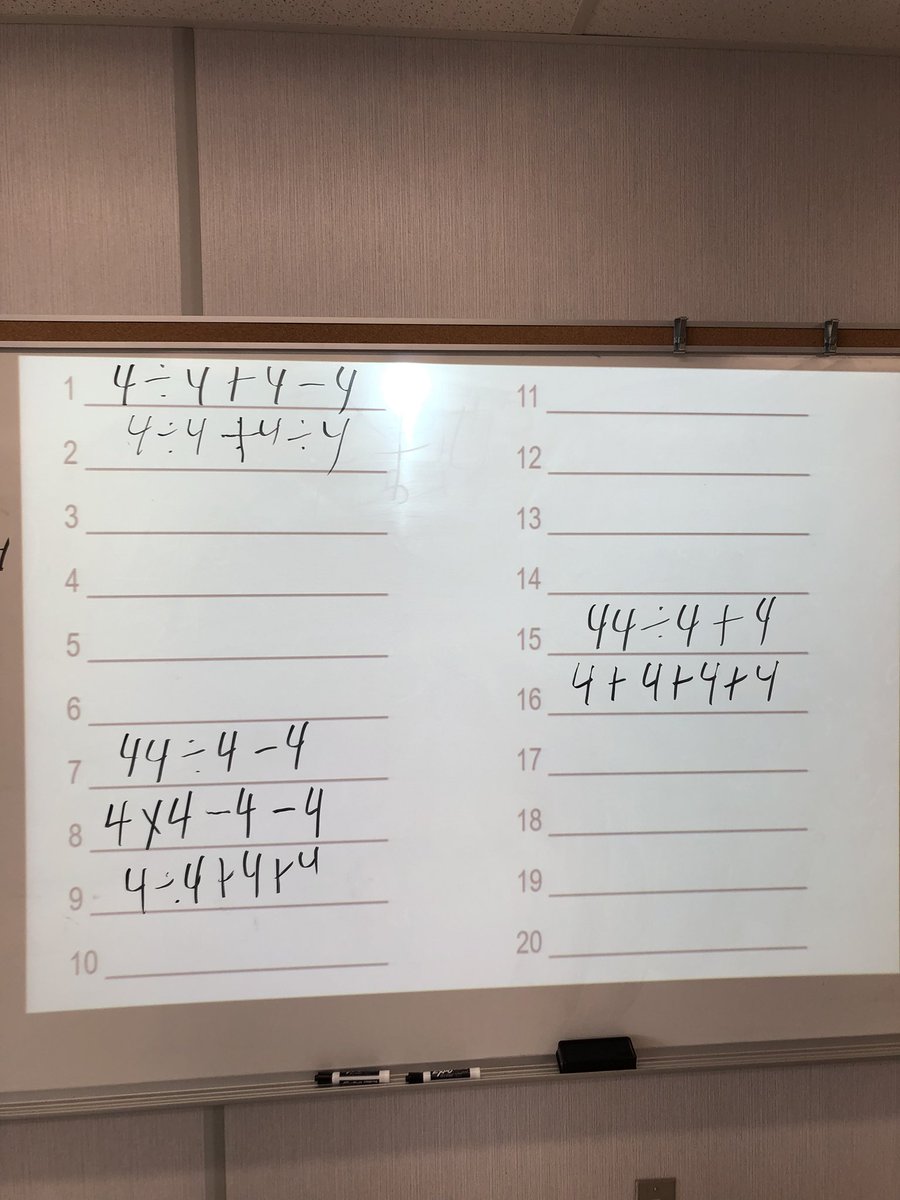 1 4÷4+4-4
2 4÷4+4÷4
3
4
5
6
7 44÷4-4
8 4x4-4-4
9 4÷4+4+4
10
11
12
13
14
15 44÷4+4
16 4+4+4+4
17
18
19
20